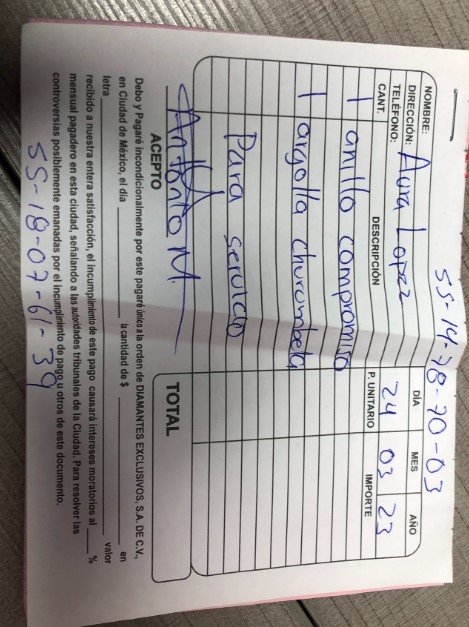 55-14-78-70-03
NOMBRE: Aura Lopez
DÍA MES AÑO
DIRECCIÓN:
TELÉFONO:
24 03 23
CANT. DESCRIPCIÓN P. UNITARIO IMPORTE
1 anillo compromiso
1 argolla churumbela
Para servicio
Antonio M.
ACEPTO
TOTAL
Debo y Pagaré incondicionalmente por este pagaré único a la orden de DIAMANTES EXCLUSIVOS, S.A. DE C.V.,
en Ciudad de México, el día la cantidad de $ en
letra valor
recibido a nuestra entera satisfacción, el incumplimiento de este pago causará intereses moratorios al %
mensual pagadero en esta ciudad, señalando a las autoridades tribunales de la Ciudad. Para resolver las
controversias posiblemente emanadas por el incumplimiento de pago u otros de este documento.
55-18-07-61-39